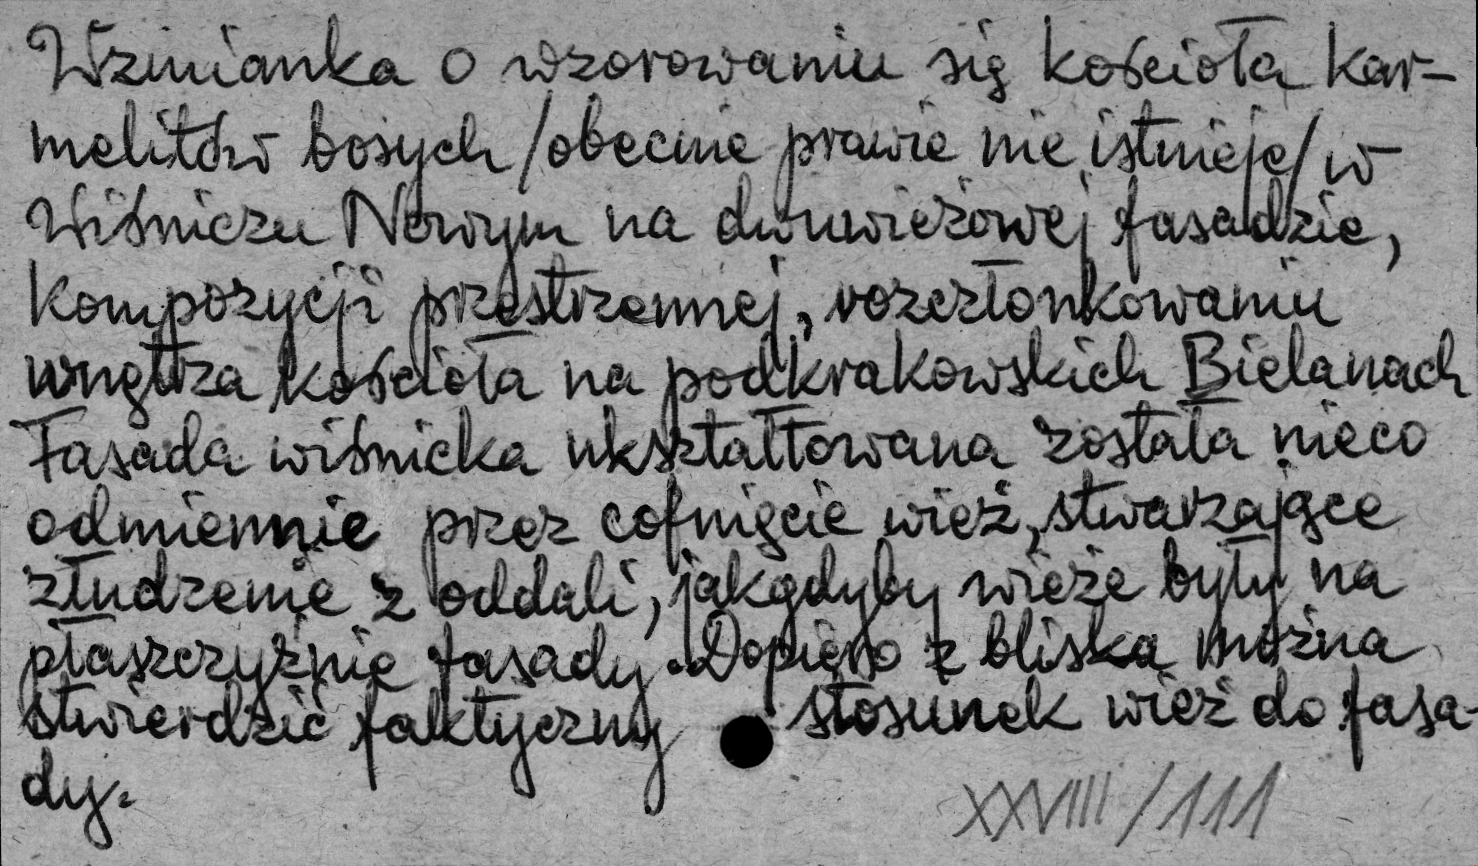 Wzmianka o wzorowaniu się kościoła kar-
melitów bosych /obecnie prawie nie istnieje/ w
Wiśniczu Nowym na dwuwieżowej fasadzie,
kompozycji przestrzennej, rozczłonkowaniu
wnętrza kościoła na podkrakowskich Bielanach
Fasada wiśnicka ukształtowana została nieco
odmiennie przez cofnięcie wież, stwarzające
złudzenie z oddali, jakgdyby wieże były na
płaszczyźnie fasady. Dopiero z bliska można
stwierdzić faktyczny stosunek wież do fasa-
dy.
XXVIII/111